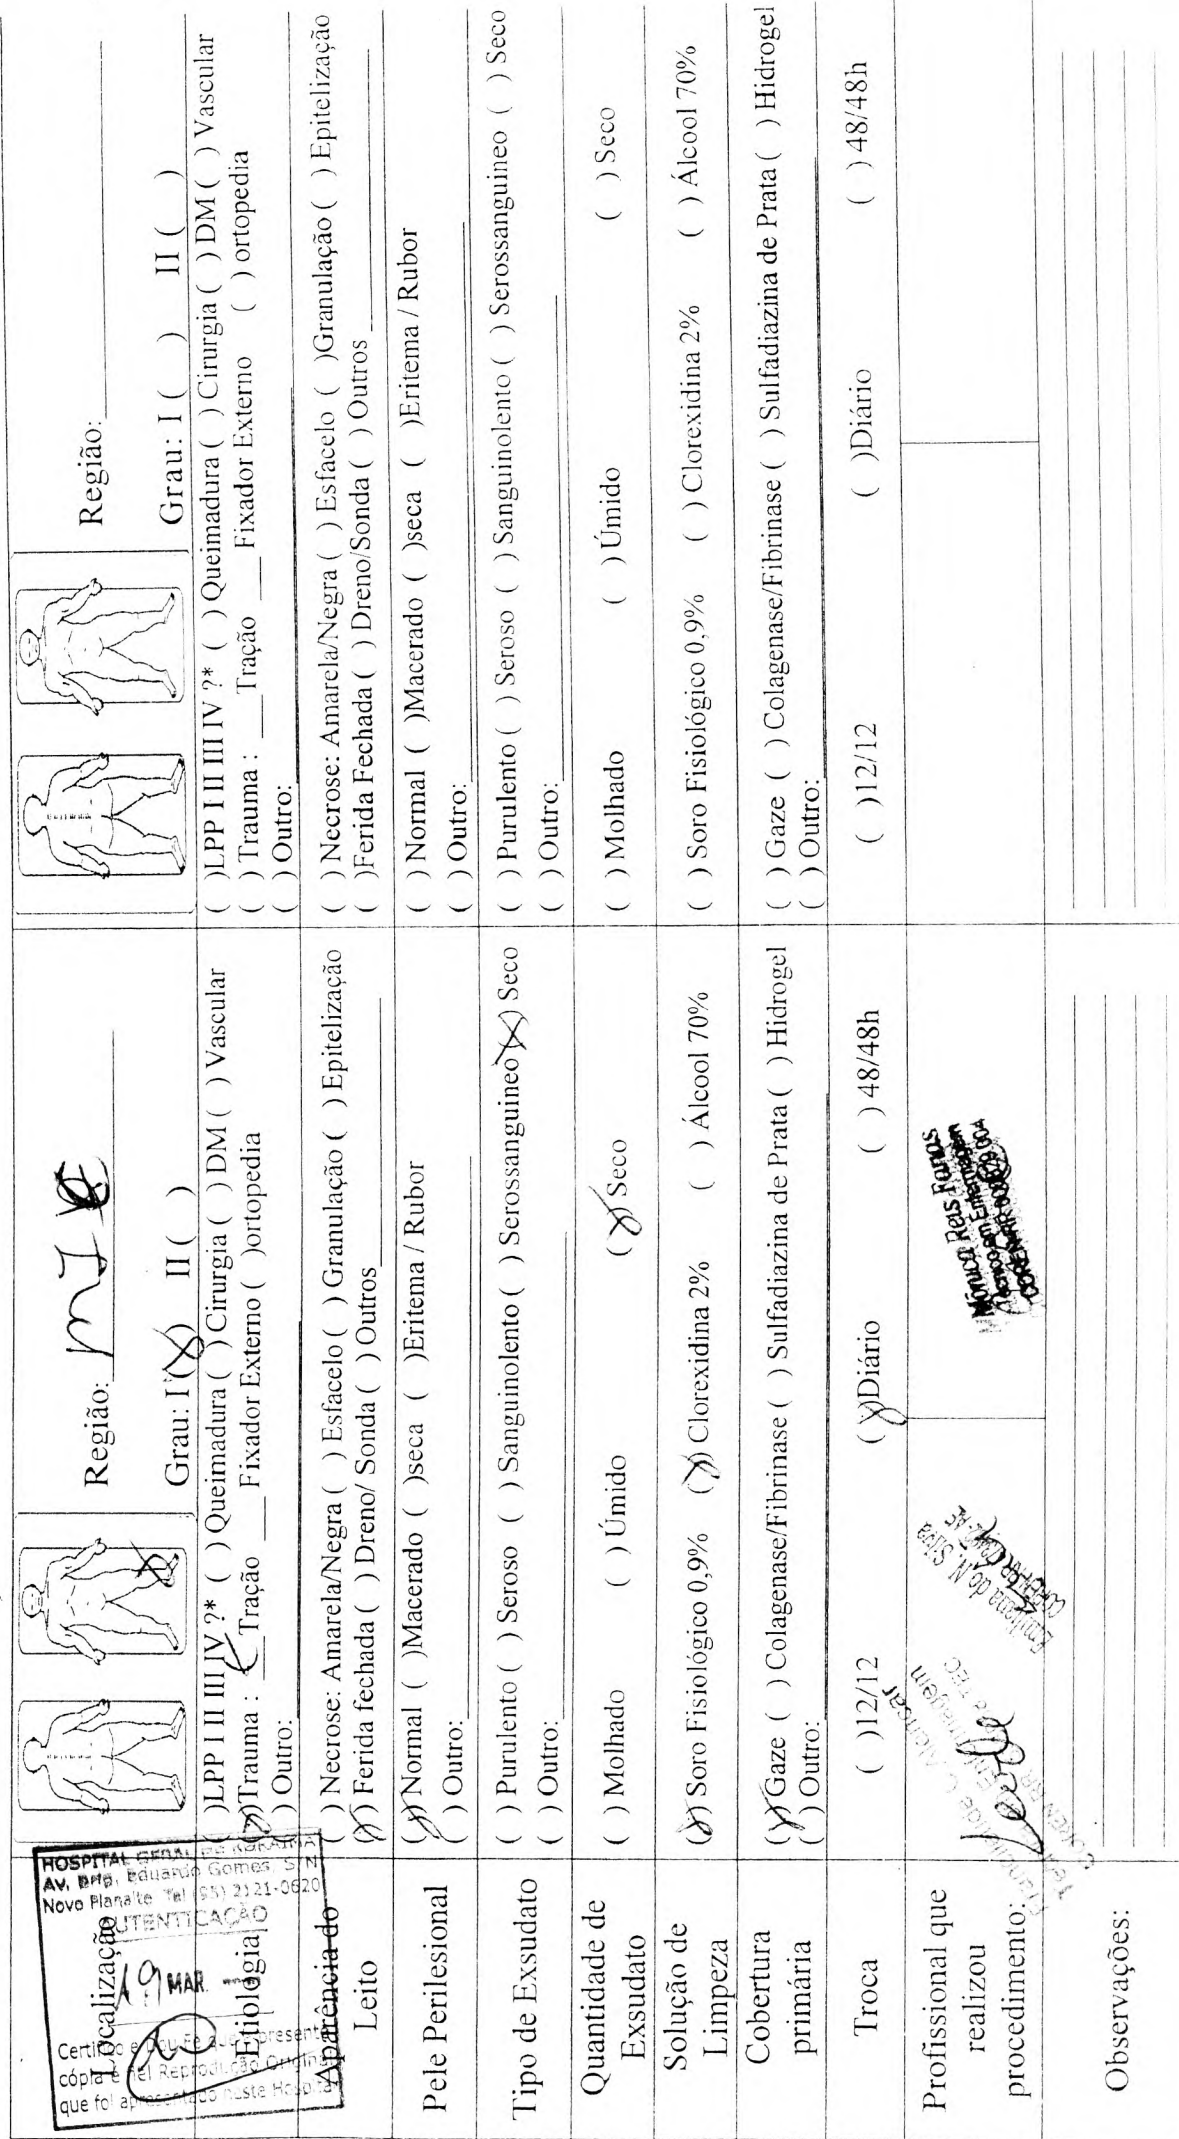 HOSPITAL GERAL DE RORAIMA
AV. Brig. Eduardo Gomes, S/N
Novo Planalto Tel (95) 2121-0620
AUTENTICAÇÃO
19 MAR
Certifico e Dou Fé que a presente
cópia é fiel Reprodução Original
que foi apresentado neste Hospital
Localização
Região: MI
Grau: I (X) II ( )
Região:
Grau: I ( ) II ( )
Etiologia
( )LPP I II III IV ?* ( ) Queimadura ( ) Cirurgia ( ) DM ( ) Vascular
(X)Trauma : Tração ___ Fixador Externo ( )ortopedia
( ) Outro:
( )LPP I II III IV ?* ( ) Queimadura ( ) Cirurgia ( ) DM ( ) Vascular
( ) Trauma : ___ Tração ___ Fixador Externo ( ) ortopedia
( ) Outro:
Aparência do
Leito
( ) Necrose: Amarela/Negra ( ) Esfacelo ( ) Granulação ( ) Epitelização
(X) Ferida fechada ( ) Dreno/ Sonda ( ) Outros
( ) Necrose: Amarela/Negra ( ) Esfacelo ( )Granulação ( ) Epitelização
( )Ferida Fechada ( ) Dreno/Sonda ( ) Outros
Pele Perilesional
(X)Normal ( )Macerado ( )seca ( )Eritema / Rubor
( ) Outro:
( ) Normal ( )Macerado ( )seca ( )Eritema / Rubor
( ) Outro:
Tipo de Exsudato
( ) Purulento ( ) Seroso ( ) Sanguinolento ( ) Serossanguineo (X) Seco
( ) Outro:
( ) Purulento ( ) Seroso ( ) Sanguinolento ( ) Serossanguineo ( ) Seco
( ) Outro:
Quantidade de
Exsudato
( ) Molhado ( ) Úmido (X) Seco
( ) Molhado ( ) Úmido ( ) Seco
Solução de
Limpeza
(X) Soro Fisiológico 0,9% (X) Clorexidina 2% ( ) Álcool 70%
( ) Soro Fisiológico 0,9% ( ) Clorexidina 2% ( ) Álcool 70%
Cobertura
primária
(X) Gaze ( ) Colagenase/Fibrinase ( ) Sulfadiazina de Prata ( ) Hidrogel
( ) Outro:
( ) Gaze ( ) Colagenase/Fibrinase ( ) Sulfadiazina de Prata ( ) Hidrogel
( ) Outro:
Troca
( )12/12 (X)Diário ( ) 48/48h
( )12/12 ( )Diário ( ) 48/48h
Profissional que
realizou
procedimento:
Alencar
N. Silva
Mônica Reis Farias
Técnico em Enfermagem
Observações: